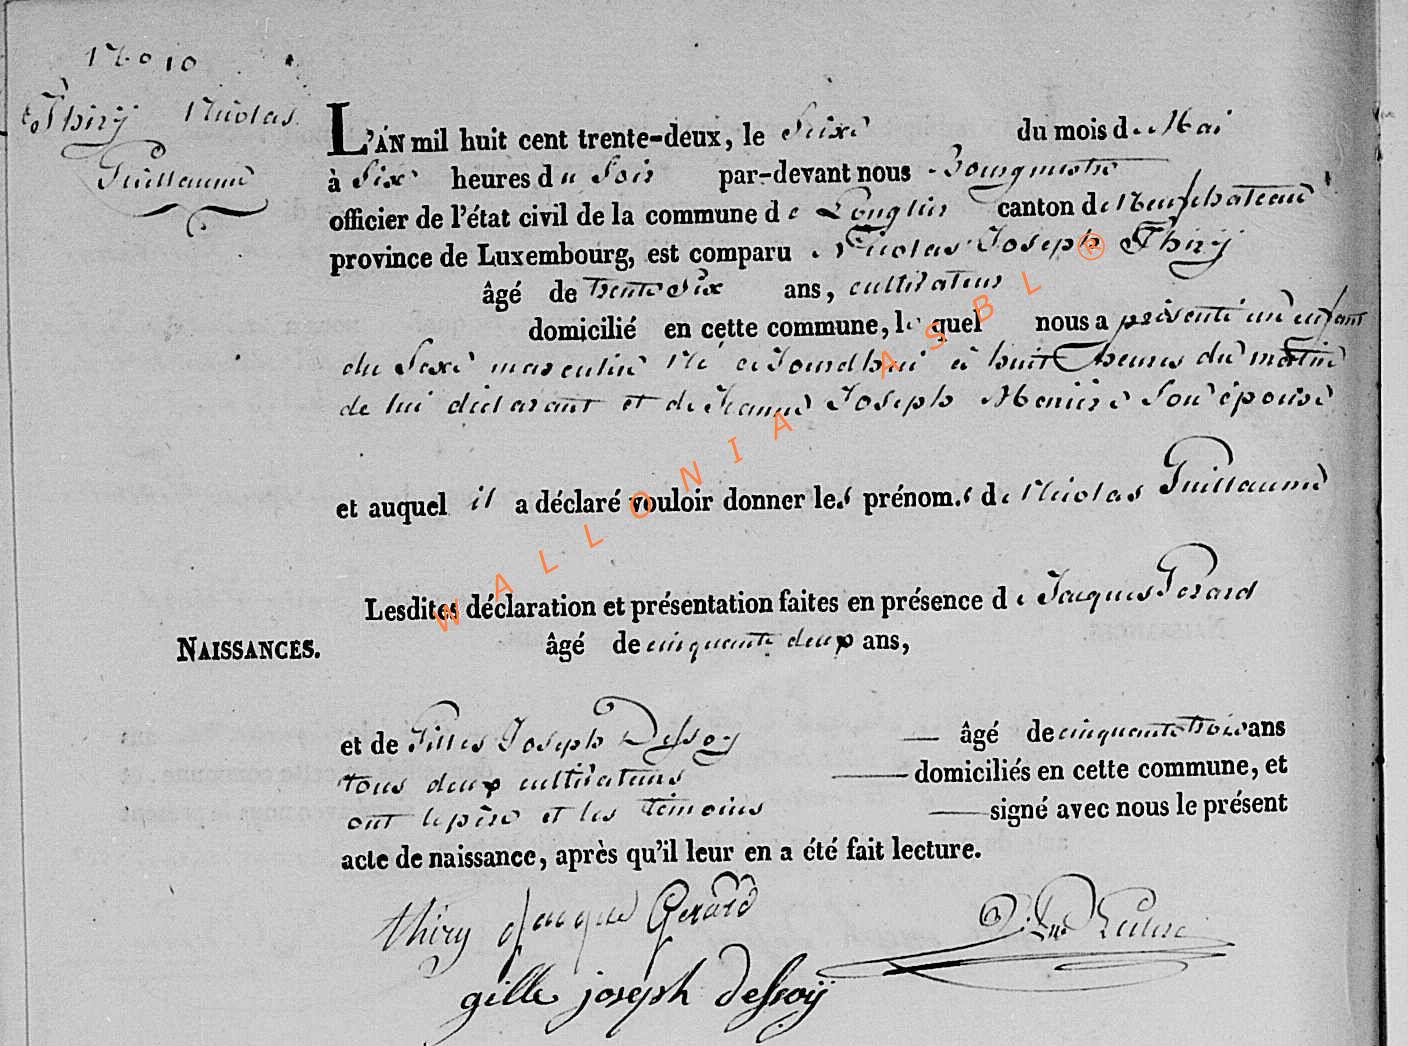 N.o 10
Thirÿ Nicolas
Guillaume
L'AN mil huit cent trente-deux, le Seize du mois de Mai
à Six heures du Soir par-devant nous Bourgmestre
officier de l'état civil de la commune de Longlier canton de Neufchateau
province de Luxembourg, est comparu Nicolas Joseph Thirÿ
âgé de trente Six ans, cultivateur
domicilié en cette commune, lequel nous a présenté un enfant
du Sexe masculin Né ajourdhui à huit heures du matin
de lui déclarant et de Jeanne Joseph Meniere Son épouse
et auquel il a déclaré vouloir donner les prénoms de Nicolas Guillaume
Lesdites déclaration et présentation faites en présence de Jacques Gerard
NAISSANCES.
âgé de cinquante deux ans,
et de Gilles Joseph Dessoy âgé de cinquante trois ans
tous deux cultivateurs domiciliés en cette commune, et
ont le père et les témoins signé avec nous le présent
acte de naissance, après qu'il leur en a été fait lecture.
thiry Jacque Gerard
gille joseph dessoiÿ
WALLONIA ASBL ®